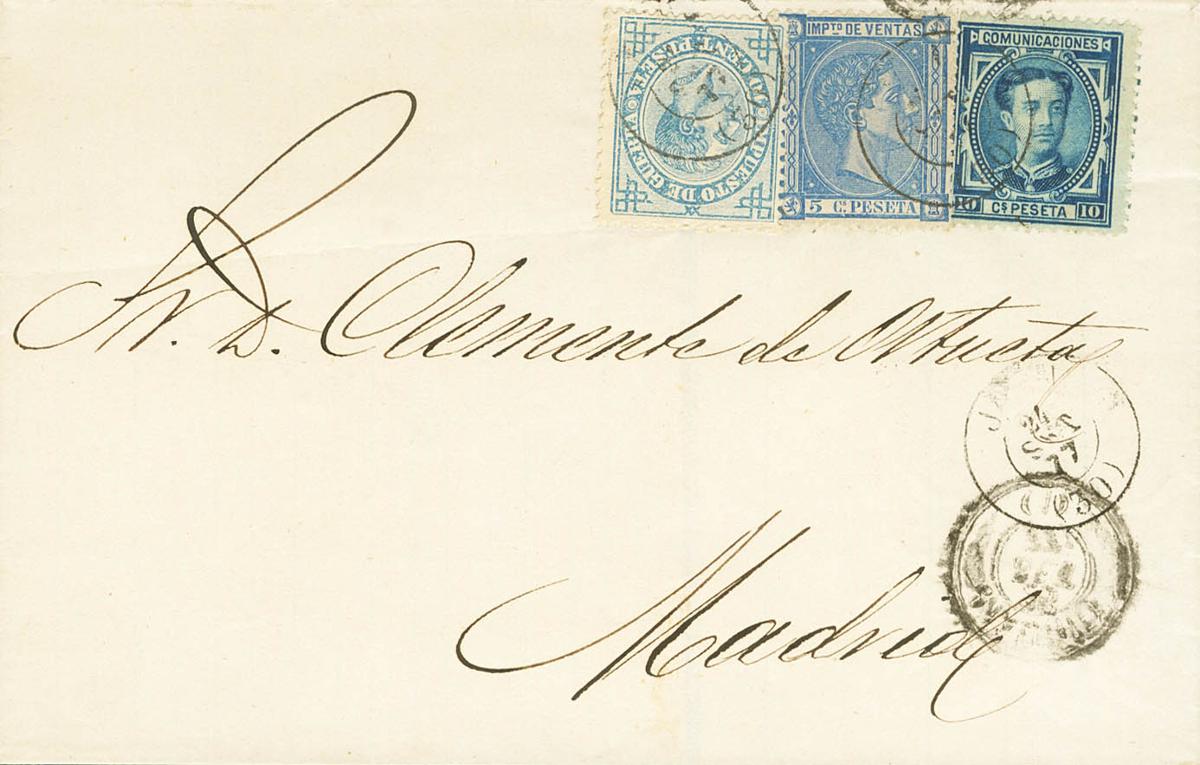 IMPUESTO DE GUERRA
IMPTO DE VENTAS
5 CS PESETA
COMUNICACIONES
10 CS PESETA 10
Sr. D. Clemente de Ortueta
Madrid